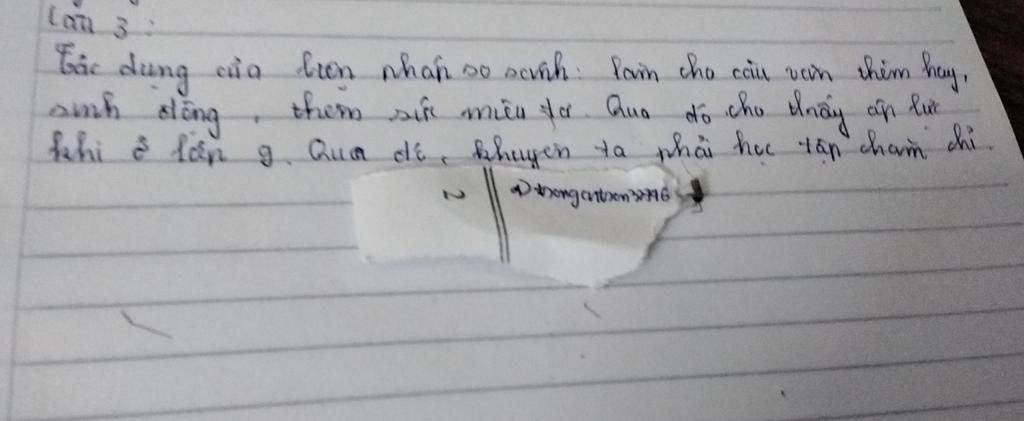 Câu 3:
Tác dụng của biện pháp so sánh: làm cho câu văn thêm hay,
sinh động, thêm sức miêu tả. Qua đó cho thấy áp lực
khi ở lớp 9. Qua đó, khuyên ta phải học tập chăm chỉ.
2